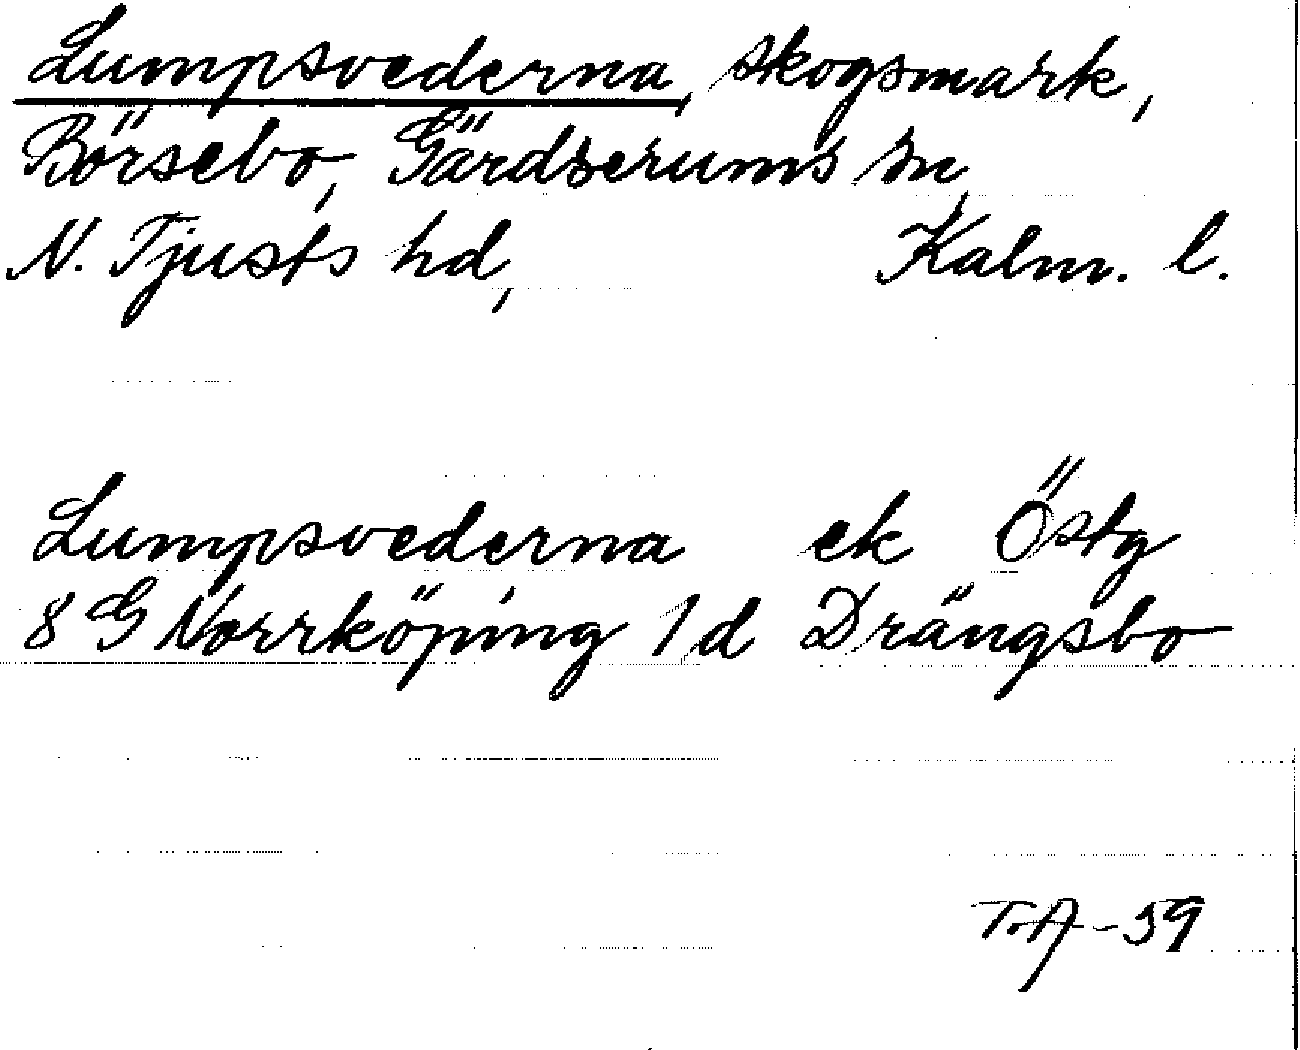 Lumpsvederna, skogsmark,
Börsebo, Gärdserums sn,
N. Tjusts hd, Kalm. l.
Lumpsvederna ek Östg
8 G Norrköping 1 d Drängsbo
T.A-59